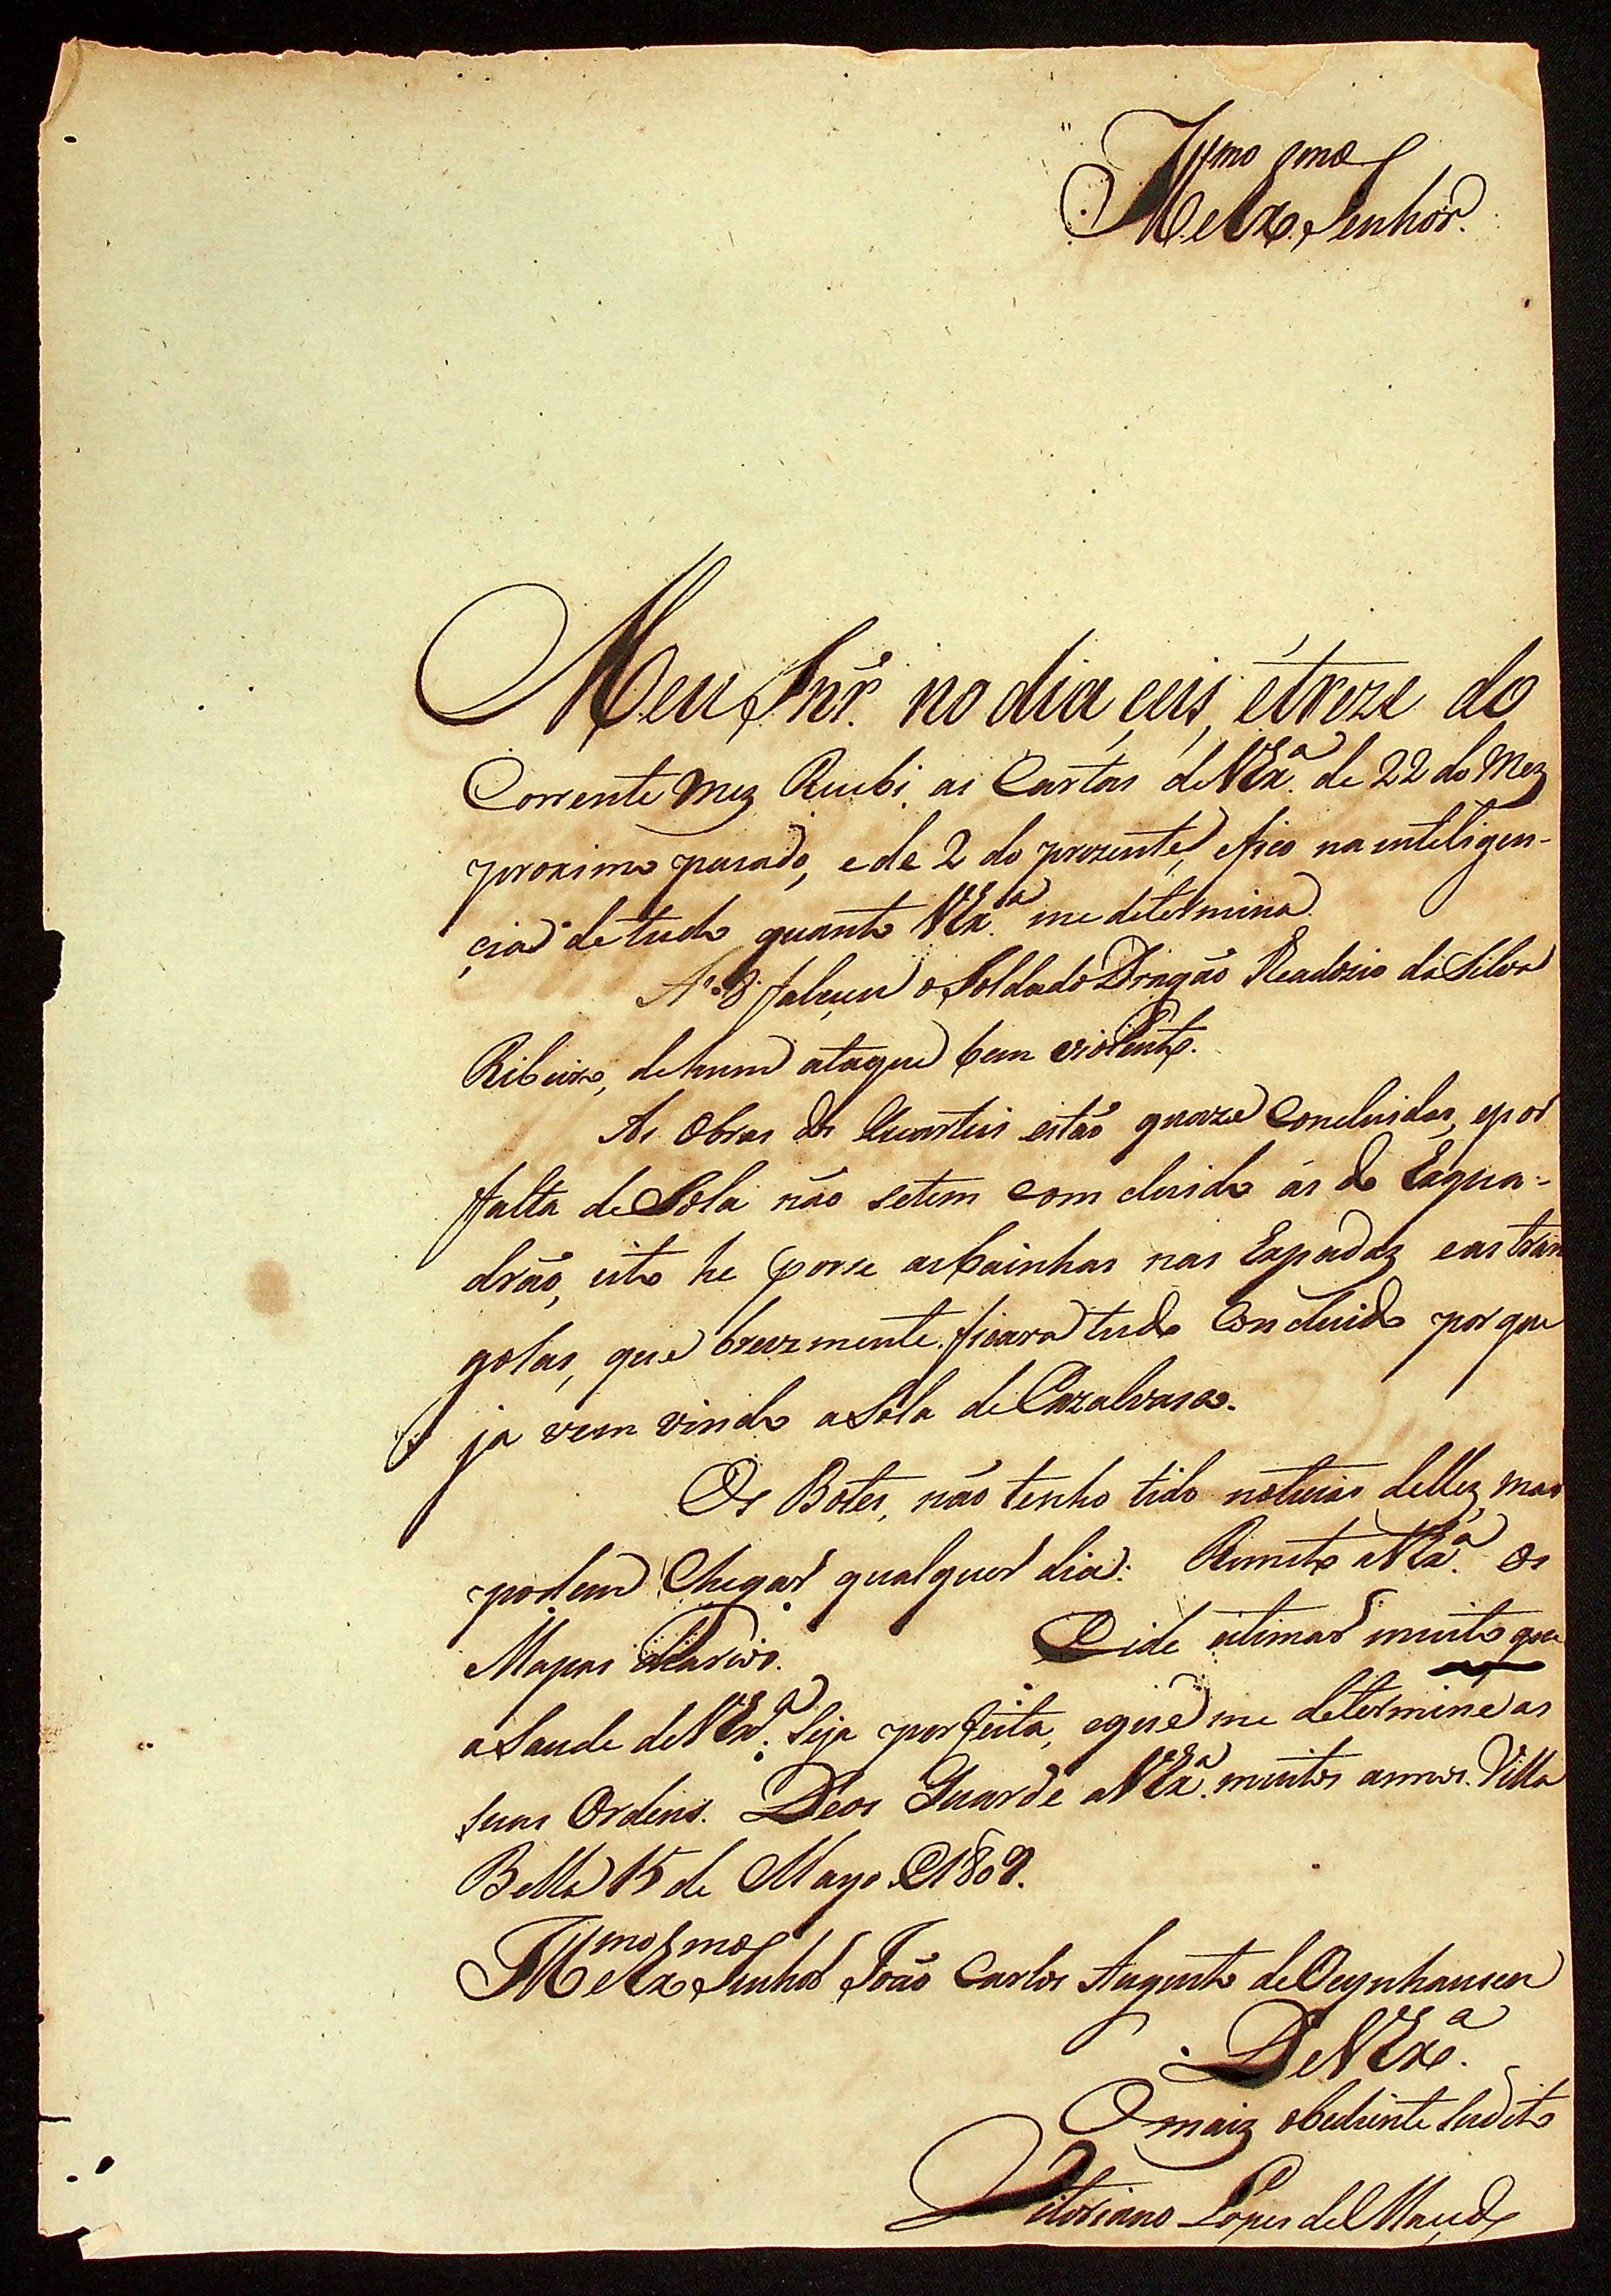 Ill.mo e Ex.mo Senhor.
Meu Snr. no dia çeis, e treze do
Corrente Mez Recebi as Cartas de V Ex.a de 22 do Mez
proximo pasado, e de 2 do prezente, e fico na inteligen-
çia de tudo quanto V Ex.a me determina.
A 8 faleçeu o Soldado Dragão Readozio da Silva
Ribeiro, de hum ataque bem violento.
As Obras dos Quarteis estão quaze Concluidas, e por
falta de Sola não setem com cluido ás do Esqua-
drão, isto he porse as bainhas nas Espadaz e as tran
golas, que brevemente ficara tudo Concluido por que
ja vem vindo a Sola de Cazalvasco.
Os Botes, não tenho tido noticias dellez, mas
podem Chegar qualquer dia. Remeto a V Ex.a Os
Mapas diarios. E ide estimar muito que
a Saude de V Ex.a Seja perfeita, e que me determine as
suas Ordens. Deos Guarde a V Ex.a muitos annos. Villa
Bella 15 de Mayo d 1809.
Ill.mo e Ex.mo Senhor João Carlos Augusto de Oeynhausen
De V Ex.a
O maiz obediente Sudito
Vitoriano Lopes de Maçedo